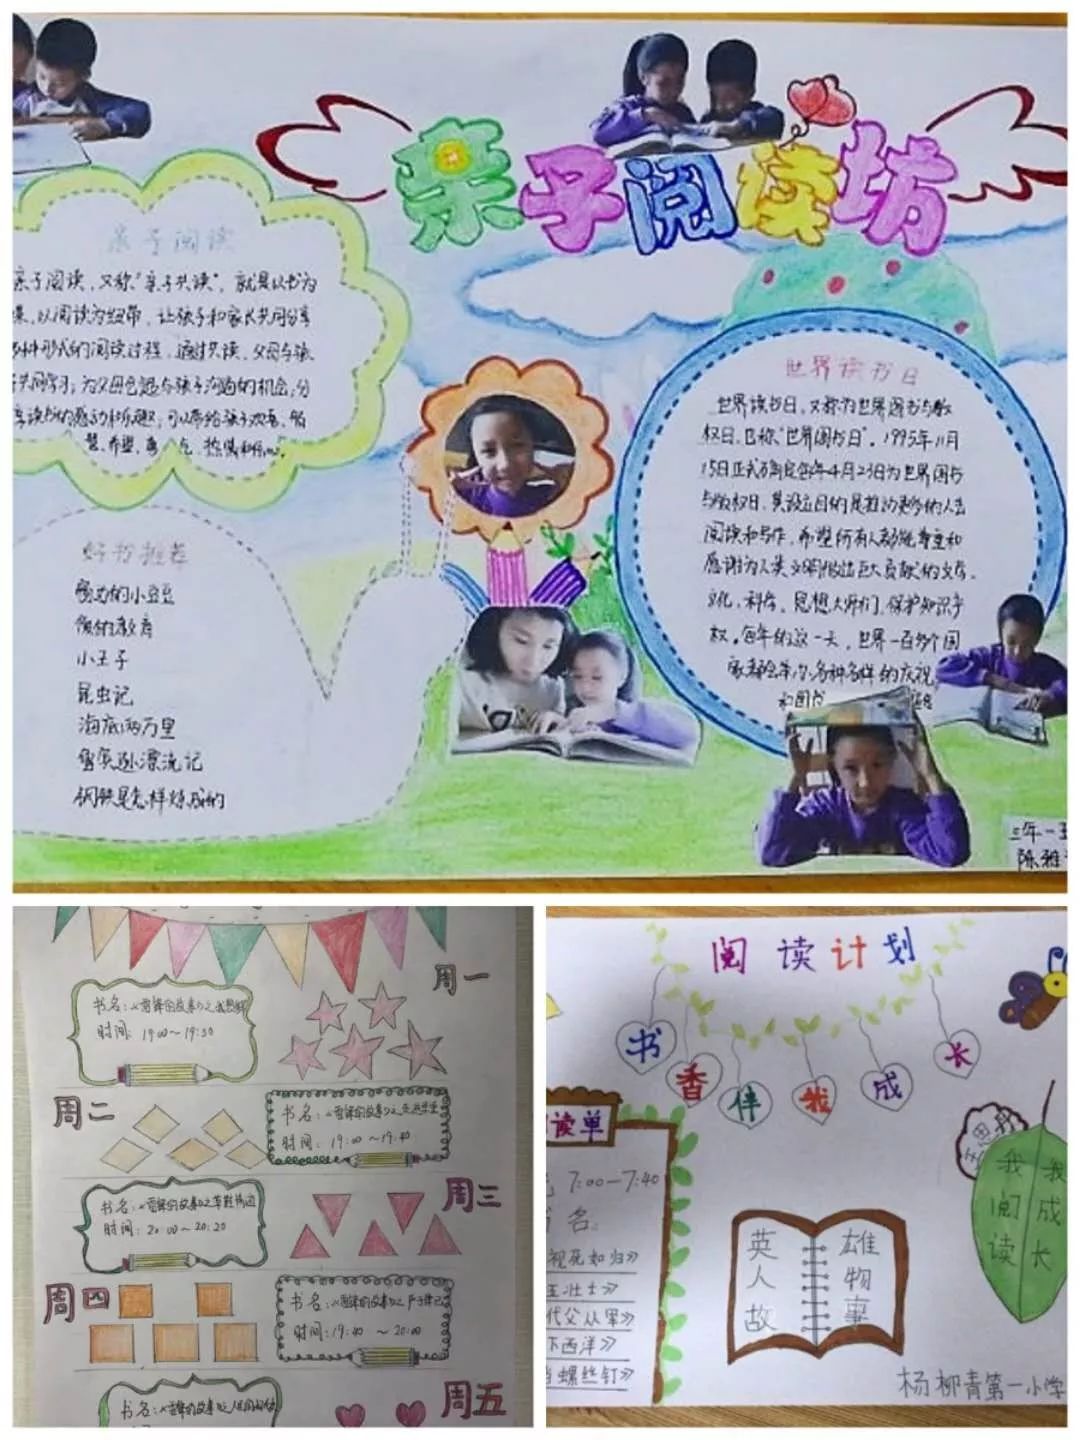 亲子阅读坊
亲子阅读
亲子阅读，又称“亲子共读”，就是以书为
以阅读为纽带，让孩子和家长共同分享
形式的阅读过程，通过共读，父母与孩
共同学习；为父母创造与孩子沟通的机会，分
享读书的感动和乐趣；可以带给孩子欢喜、智
慧、希望、勇气、热情和信心。
好书推荐
爱的教育
小王子
昆虫记
海底两万里
鲁宾逊漂流记
钢铁是怎样炼成的
世界读书日
世界读书日，又称为世界图书与版
权日，也称“世界图书日”。1995年11月
15日正式确定每年4月23日为世界图书
与版权日，其设立目的是推动更多的人去
阅读和写作，希望所有人都能尊重和
感谢为人类文明做出巨大贡献的文学、
文化、科学、思想大师们，保护知识产
权。每年的这一天，世界一百多个国
家都会举办各种各样的庆祝
和图书
三年一班
陈雅
周一
书名：《雷锋的故事》之
时间：19:00～19:30
周二
书名：《雷锋的故事》之
时间：19:00～19:40
周三
书名：《雷锋的故事》之
时间：20:00～20:20
周四
书名：《雷锋的故事》之严于律己
时间：19:40～20:00
周五
书名：《雷锋的故事》之
阅读计划
书香伴我成长
读单
7:00—7:40
书名:
视死如归》
王壮士》
代父从军》
下西洋》
螺丝钉》
英雄
人物
故事
我阅读
我成长
杨柳青第一小学